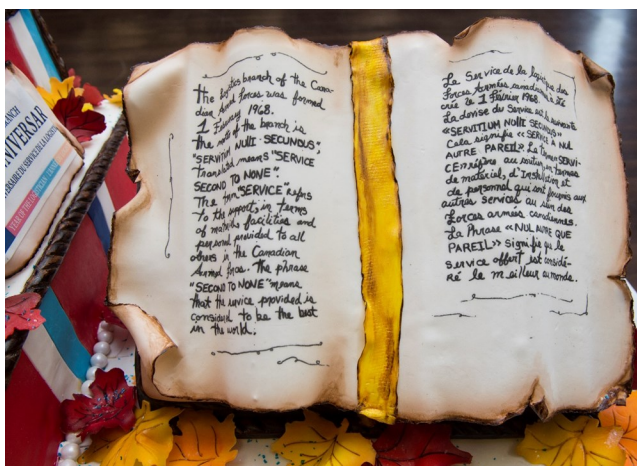 BRANCH
NIVERSAR
the logitics branch of the Cana-
dian Armed Forces was formed
1 February 1968.
the motto of the branch is
"SERVITIUM NULLI SECUNDUS",
translated means "SERVICE
SECOND TO NONE".
The term "SERVICE" refers
to the supports in terms
of materiels, facilities and
personnel provided to all
others in the Canadian
Armed Forces. The phrase
"SECOND TO NONE" means
that the service provided is
considered to be the best
in the world.
La Service de la logistique des
Forces Armées canadiennes a été
crée le 1 Février 1968.
La devise du Service est la suivante
«SERVITIUM NULLI SECUNDUS»
Cela signifie «SERVICE À NUL
AUTRE PAREIL». Le terme SERVI-
CE réfère au soutien en termes
de matériels, d'Installation et
de personnel qui sont fournis aux
autres services au sein des
Forces armées canadiennes.
La Phrase «NUL AUTRE QUE
PAREIL» signifie que le
service offert est considé-
ré le meilleur au monde.